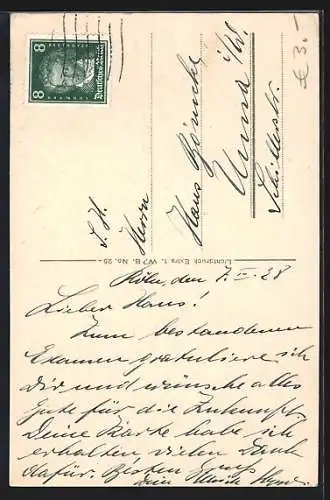 8 Deutsches Reich 8
BEETHOVEN
€ 3.-
S. H.
Herrn
Hans
Unna i/W.
Schillerstr.
Lichtdruck Extra 1. W. 7 B. No. 29
Köln, den 7. III. 28
Lieber Hans!
Zum bestandenen
Examen gratuliere ich
Dir und wünsche alles
Gute für die Zukunft.
Deine Karte habe ich
erhalten vielen Dank
dafür. Besten Gruß
Dein